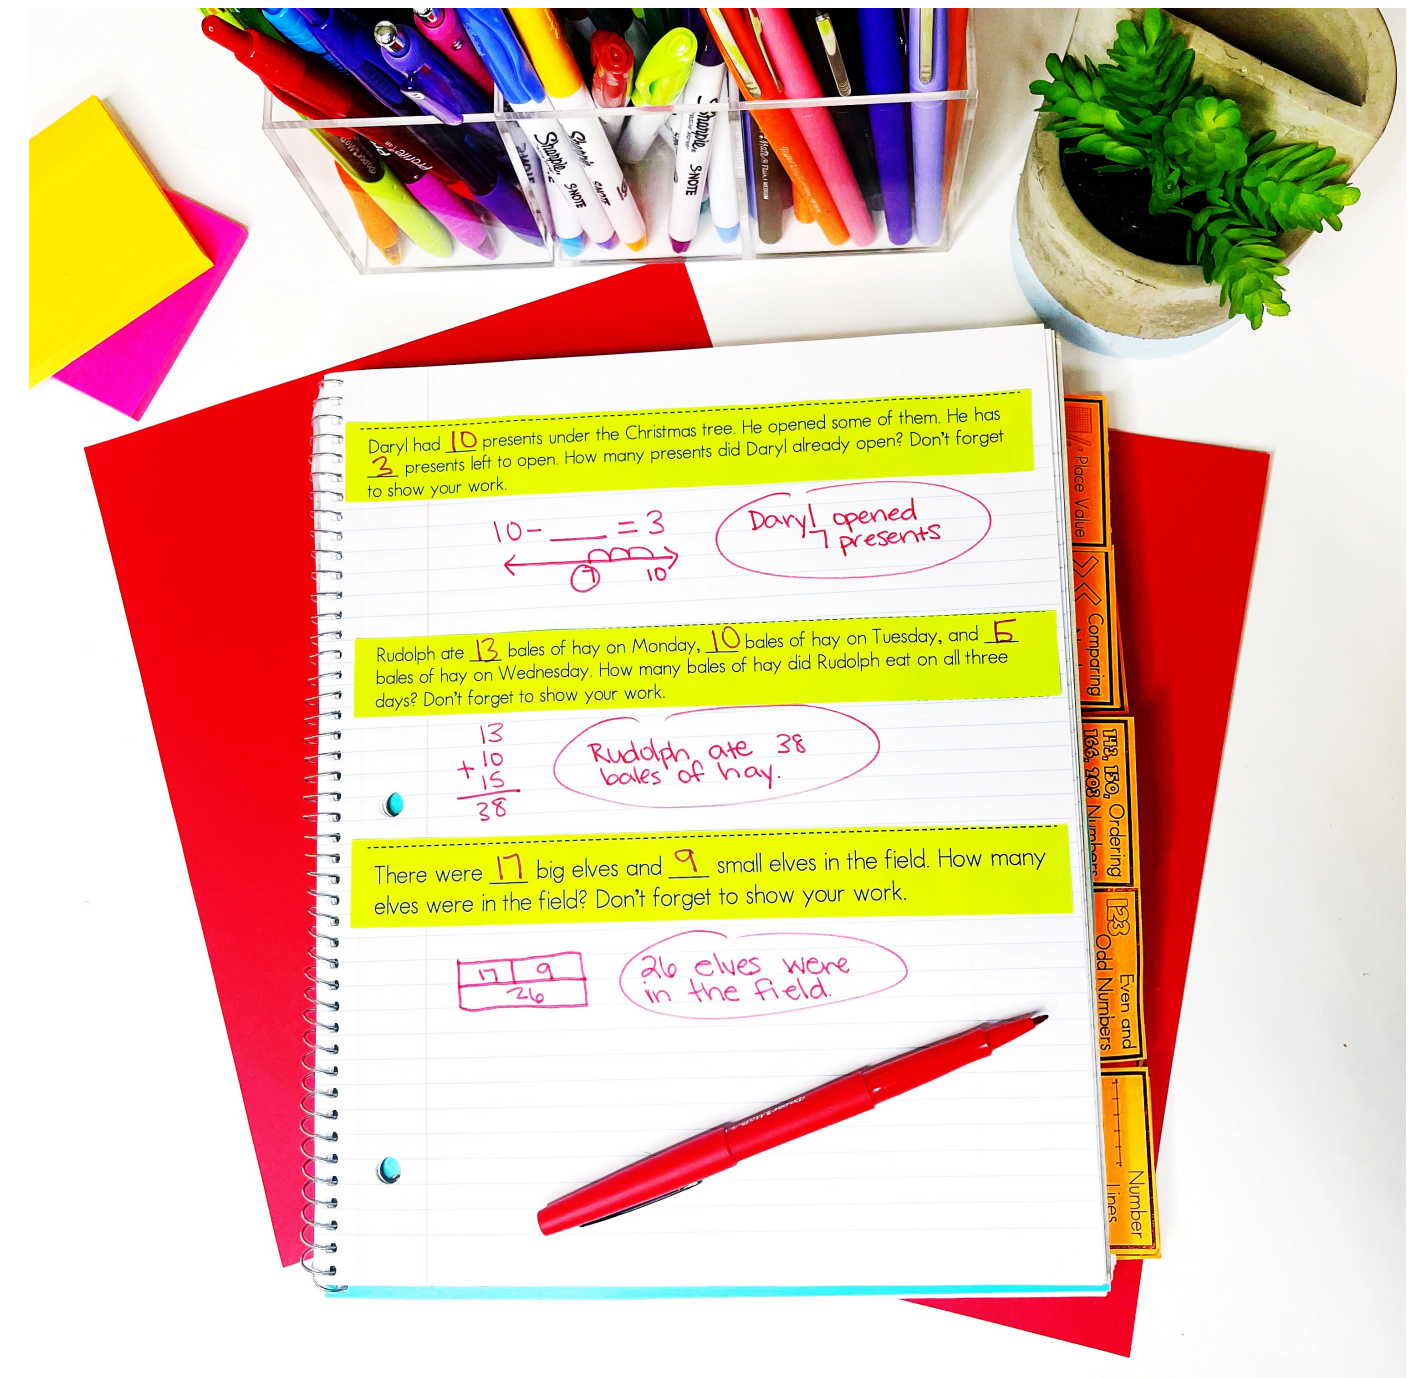 Sharpie
S·NOTE
Sharpie
S·NOTE
Sharpie
S·NOTE
Daryl had 10 presents under the Christmas tree. He opened some of them. He has
3 presents left to open. How many presents did Daryl already open? Don't forget
to show your work.
10 - ___ = 3
7 10
Daryl opened
7 presents
Rudolph ate 13 bales of hay on Monday, 10 bales of hay on Tuesday, and 15
bales of hay on Wednesday. How many bales of hay did Rudolph eat on all three
days? Don't forget to show your work.
13
10
+ 15
38
Rudolph ate 38
bales of hay.
There were 17 big elves and 9 small elves in the field. How many
elves were in the field? Don't forget to show your work.
17 9
26
26 elves were
in the field.
Place Value
Comparing
143, 150, Ordering
166, 203 Numbers
123 Even and
Odd Numbers
Number
Lines